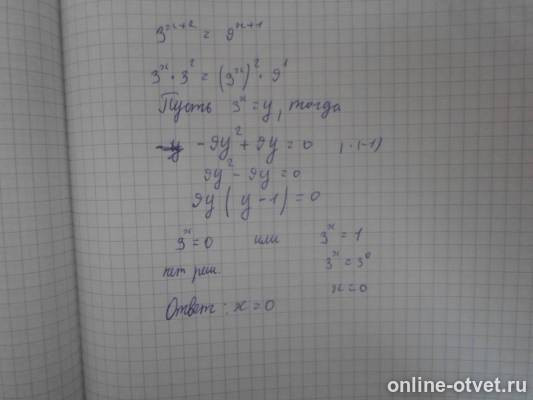 3^(x+2) = 9^(x+1)
3^x · 3^2 = (3^x)^2 · 9^1
Пусть 3^x = y, тогда
-9y^2 + 9y = 0 | · (-1)
9y^2 - 9y = 0
9y (y - 1) = 0
3^x = 0 или 3^x = 1
нет реш. 3^x = 3^0
x = 0
Ответ: x = 0
online-otvet.ru